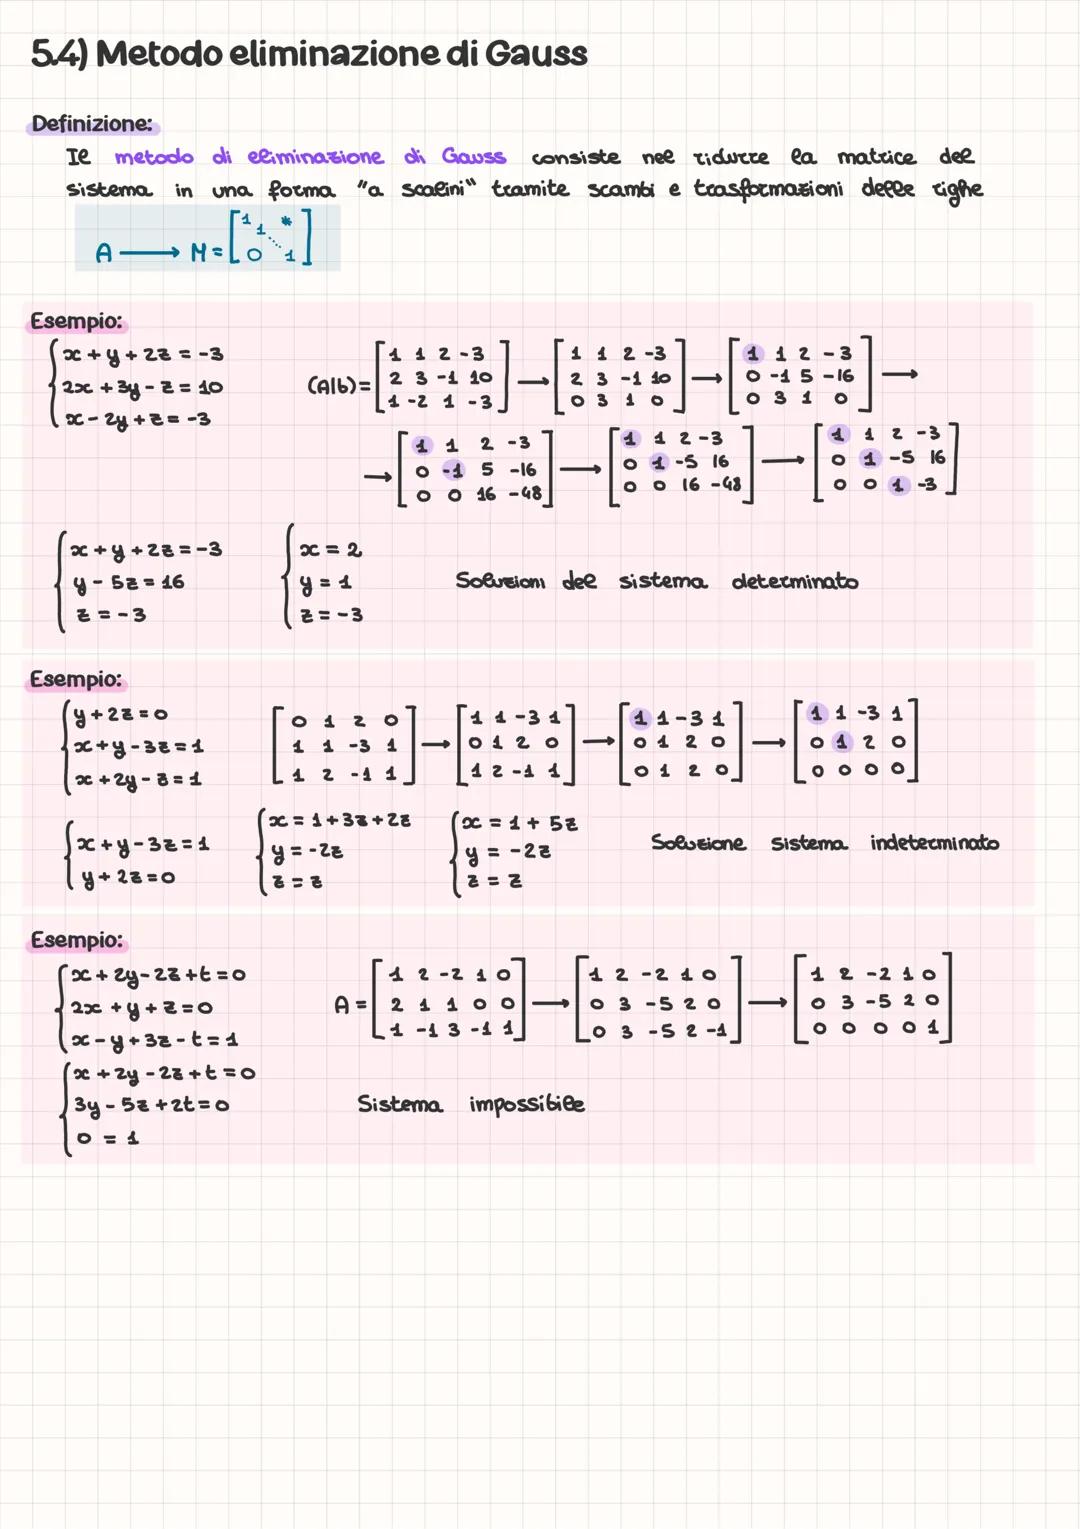 5.4) Metodo eliminazione di Gauss
Definizione:
Il metodo di eliminazione di Gauss consiste nel ridurre la matrice del
sistema in una forma "a scalini" tramite scambi e trasformazioni delle righe
A ⟶ M = [1 1 * ⋱ 0 1]
Esempio:
{x + y + 2z = -3
2x + 3y - z = 10
x - 2y + z = -3
(A|b) = [1 1 2 -3
2 3 -1 10
1 -2 1 -3] ⟶ [1 1 2 -3
2 3 -1 10
0 3 1 0] ⟶ [1 1 2 -3
0 -1 5 -16
0 3 1 0] ⟶
⟶ [1 1 2 -3
0 -1 5 -16
0 0 16 -48] ⟶ [1 1 2 -3
0 1 -5 16
0 0 16 -48] ⟶ [1 1 2 -3
0 1 -5 16
0 0 1 -3]
{x + y + 2z = -3
y - 5z = 16
z = -3
{x = 2
y = 1
z = -3
Soluzioni del sistema determinato
Esempio:
{y + 2z = 0
x + y - 3z = 1
x + 2y - z = 1
[0 1 2 0
1 1 -3 1
1 2 -1 1] ⟶ [1 1 -3 1
0 1 2 0
1 2 -1 1] ⟶ [1 1 -3 1
0 1 2 0
0 1 2 0] ⟶ [1 1 -3 1
0 1 2 0
0 0 0 0]
{x + y - 3z = 1
y + 2z = 0
{x = 1 + 3z + 2z
y = -2z
z = z
{x = 1 + 5z
y = -2z
z = z
Soluzione sistema indeterminato
Esempio:
{x + 2y - 2z + t = 0
2x + y + z = 0
x - y + 3z - t = 1
A = [1 2 -2 1 0
2 1 1 0 0
1 -1 3 -1 1] ⟶ [1 2 -2 1 0
0 3 -5 2 0
0 3 -5 2 -1] ⟶ [1 2 -2 1 0
0 3 -5 2 0
0 0 0 0 1]
{x + 2y - 2z + t = 0
3y - 5z + 2t = 0
0 = 1
Sistema impossibile